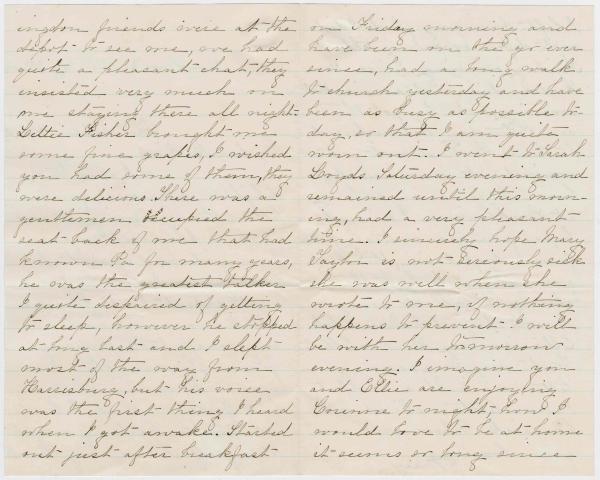 ington friends were at the
depot to see me, we had
quite a pleasant chat, they
insisted very much on
me staying there all night.
Lettie Fisher brought me
some fine grapes, I wished
you had some of them, they
were delicious. There was a
gentlemen occupied the
seat back of me that had
known Pa for many years,
he was the greatest talker
I quite despaired of getting
to sleep, however he stopped
at long last and I slept
most of the way from
Harrisburg, but his voice
was the first thing I heard
when I got awake. Started
out just after breakfast
on Friday morning and
have been on the go ever
since, had a long walk
to church yesterday and have
been as busy as possible to-
day, so that I am quite
worn out. I went to Sarah
Lloyds Saturday evening and
remained until this morn-
ing, had a very pleasant
time. I sincerely hope Mary
Taylor is not sereously sick
she was well when she
wrote to me, if nothing
happens to prevent I will
be with her tomorrow
evening. I imagine you
and Ellie are enjoying
Corinne to night, how I
would love to be at home
it seems so long since